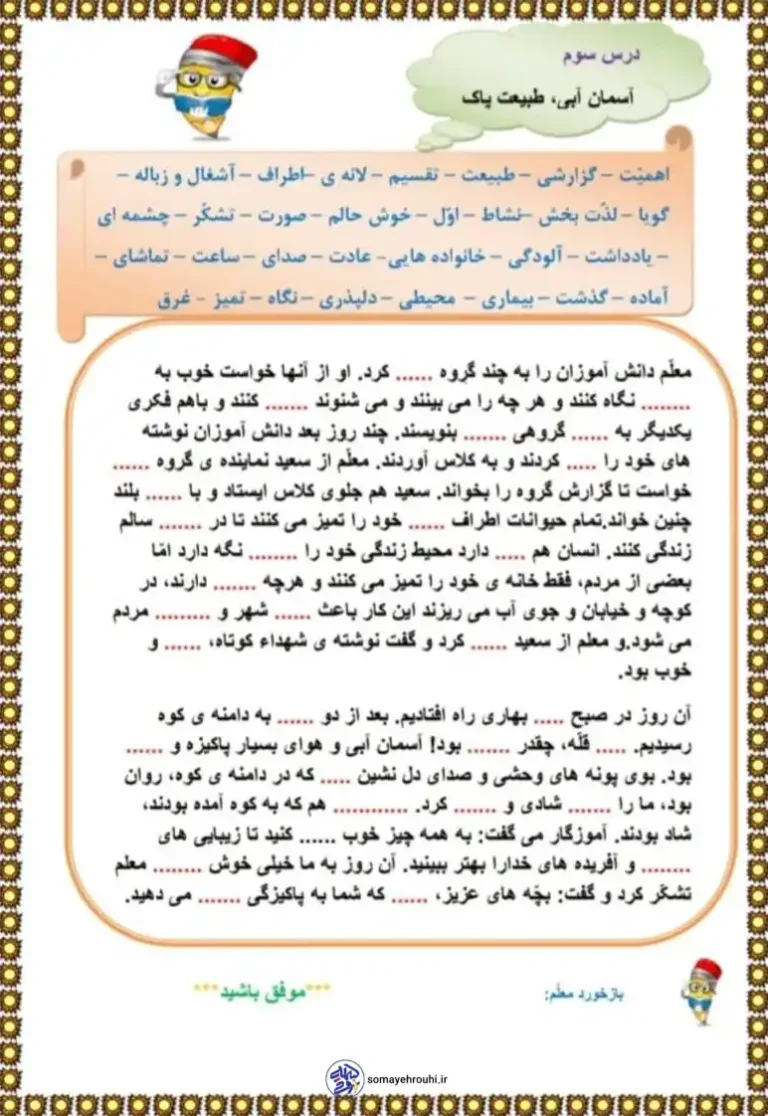 درس سوم
آسمان آبی، طبیعت پاک
اهمیّت – گزارشی – طبیعت – تقسیم – لانه ی –اطراف – آشغال و زباله –
گویا – لذّت بخش –نشاط – اوّل – خوش حالم – صورت – تشکّر – چشمه ای
– یادداشت – آلودگی – خانواده هایی- عادت – صدای – ساعت – تماشای –
آماده – گذشت – بیماری – محیطی – دلپذری – نگاه – تمیز - غرق
معلّم دانش آموزان را به چند گروه ...... کرد. او از آنها خواست خوب به
........ نگاه کنند و هر چه را می بینند و می شنوند ....... کنند و باهم فکری
یکدیگر به ...... گروهی ....... بنویسند. چند روز بعد دانش آموزان نوشته
های خود را ..... کردند و به کلاس آوردند. معلّم از سعید نماینده ی گروه ......
خواست تا گزارش گروه را بخواند. سعید هم جلوی کلاس ایستاد و با ...... بلند
چنین خواند.تمام حیوانات اطراف ...... خود را تمیز می کنند تا در ....... سالم
زندگی کنند. انسان هم ..... دارد محیط زندگی خود را ........ نگه دارد امّا
بعضی از مردم، فقط خانه ی خود را تمیز می کنند و هرچه ....... دارند، در
کوچه و خیابان و جوی آب می ریزند این کار باعث ...... شهر و ......... مردم
می شود.و معلم از سعید ...... کرد و گفت نوشته ی شهداء کوتاه، ...... و
خوب بود.
آن روز در صبح ..... بهاری راه افتادیم. بعد از دو ...... به دامنه ی کوه
رسیدیم. ..... قلّه، چقدر ....... بود! آسمان آبی و هوای بسیار پاکیزه و ......
بود. بوی پونه های وحشی و صدای دل نشین ..... که در دامنه ی کوه، روان
بود، ما را ....... شادی و ....... کرد. ............ هم که به کوه آمده بودند،
شاد بودند. آموزگار می گفت: به همه چیز خوب ...... کنید تا زیبایی های
........ و آفریده های خدارا بهتر ببینید. آن روز به ما خیلی خوش ........ معلم
تشکّر کرد و گفت: بچّه های عزیز، ...... که شما به پاکیزگی ....... می دهید.
بازخورد معلّم:
***موفق باشید***
somayehrouhi.ir